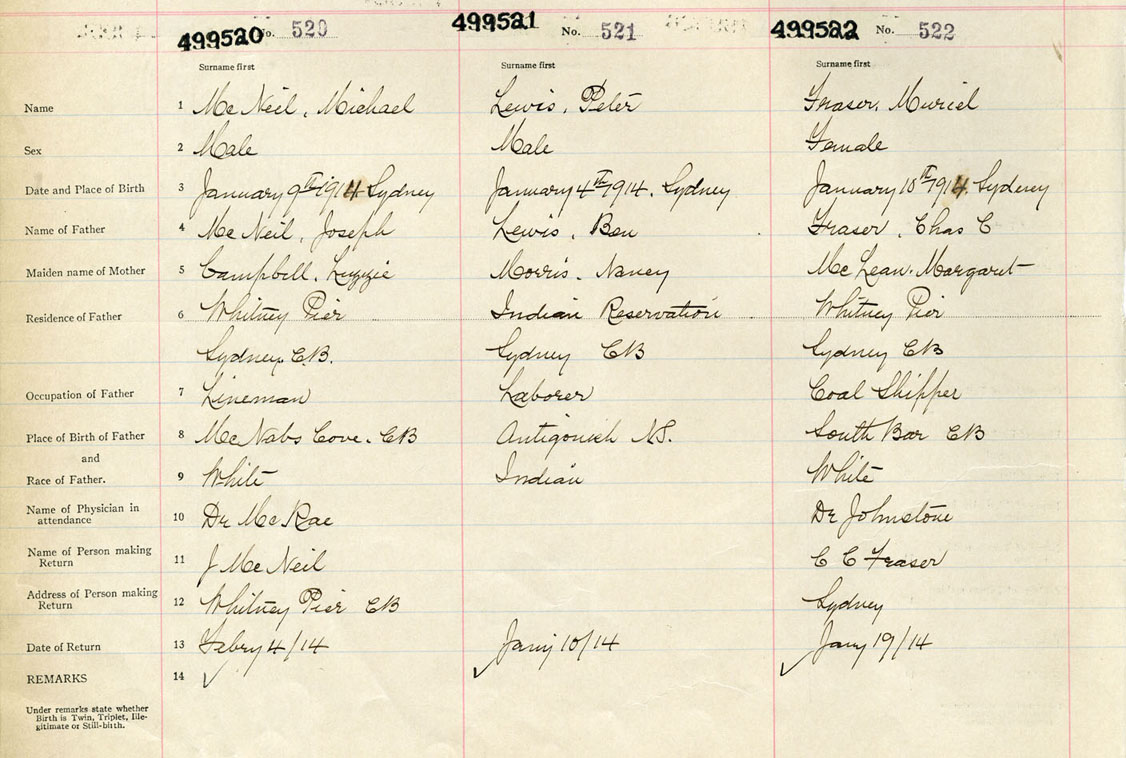 499520 No. 520 499521 No. 521 499522 No. 522
Surname first Surname first Surname first
Name 1 McNeil, Michael Lewis, Peter Fraser, Muriel
Sex 2 Male Male Female
Date and Place of Birth 3 January 9th 1914 Sydney January 4th 1914. Sydney January 10th 1914. Sydney
Name of Father 4 McNeil, Joseph Lewis, Ben Fraser, Chas C
Maiden name of Mother 5 Campbell, Lizzie Morris, Nancy McLean, Margaret
Residence of Father 6 Whitney Pier Indian Reservation Whitney Pier
Sydney, C.B. Sydney CB Sydney CB
Occupation of Father 7 Lineman Laborer Coal Shipper
Place of Birth of Father 8 McNabs Cove. CB Antigonish N.S. South Bar CB
and
Race of Father. 9 White Indian White
Name of Physician in
attendance 10 Dr McRae Dr Johnstone
Name of Person making
Return 11 J McNeil C C Fraser
Address of Person making
Return 12 Whitney Pier CB Sydney
Date of Return 13 Febry 4/14 Jany 10/14 Jany 19/14
REMARKS 14 ✓ ✓ ✓
Under remarks state whether
Birth is Twin, Triplet, Ille-
gitimate or Still-birth.